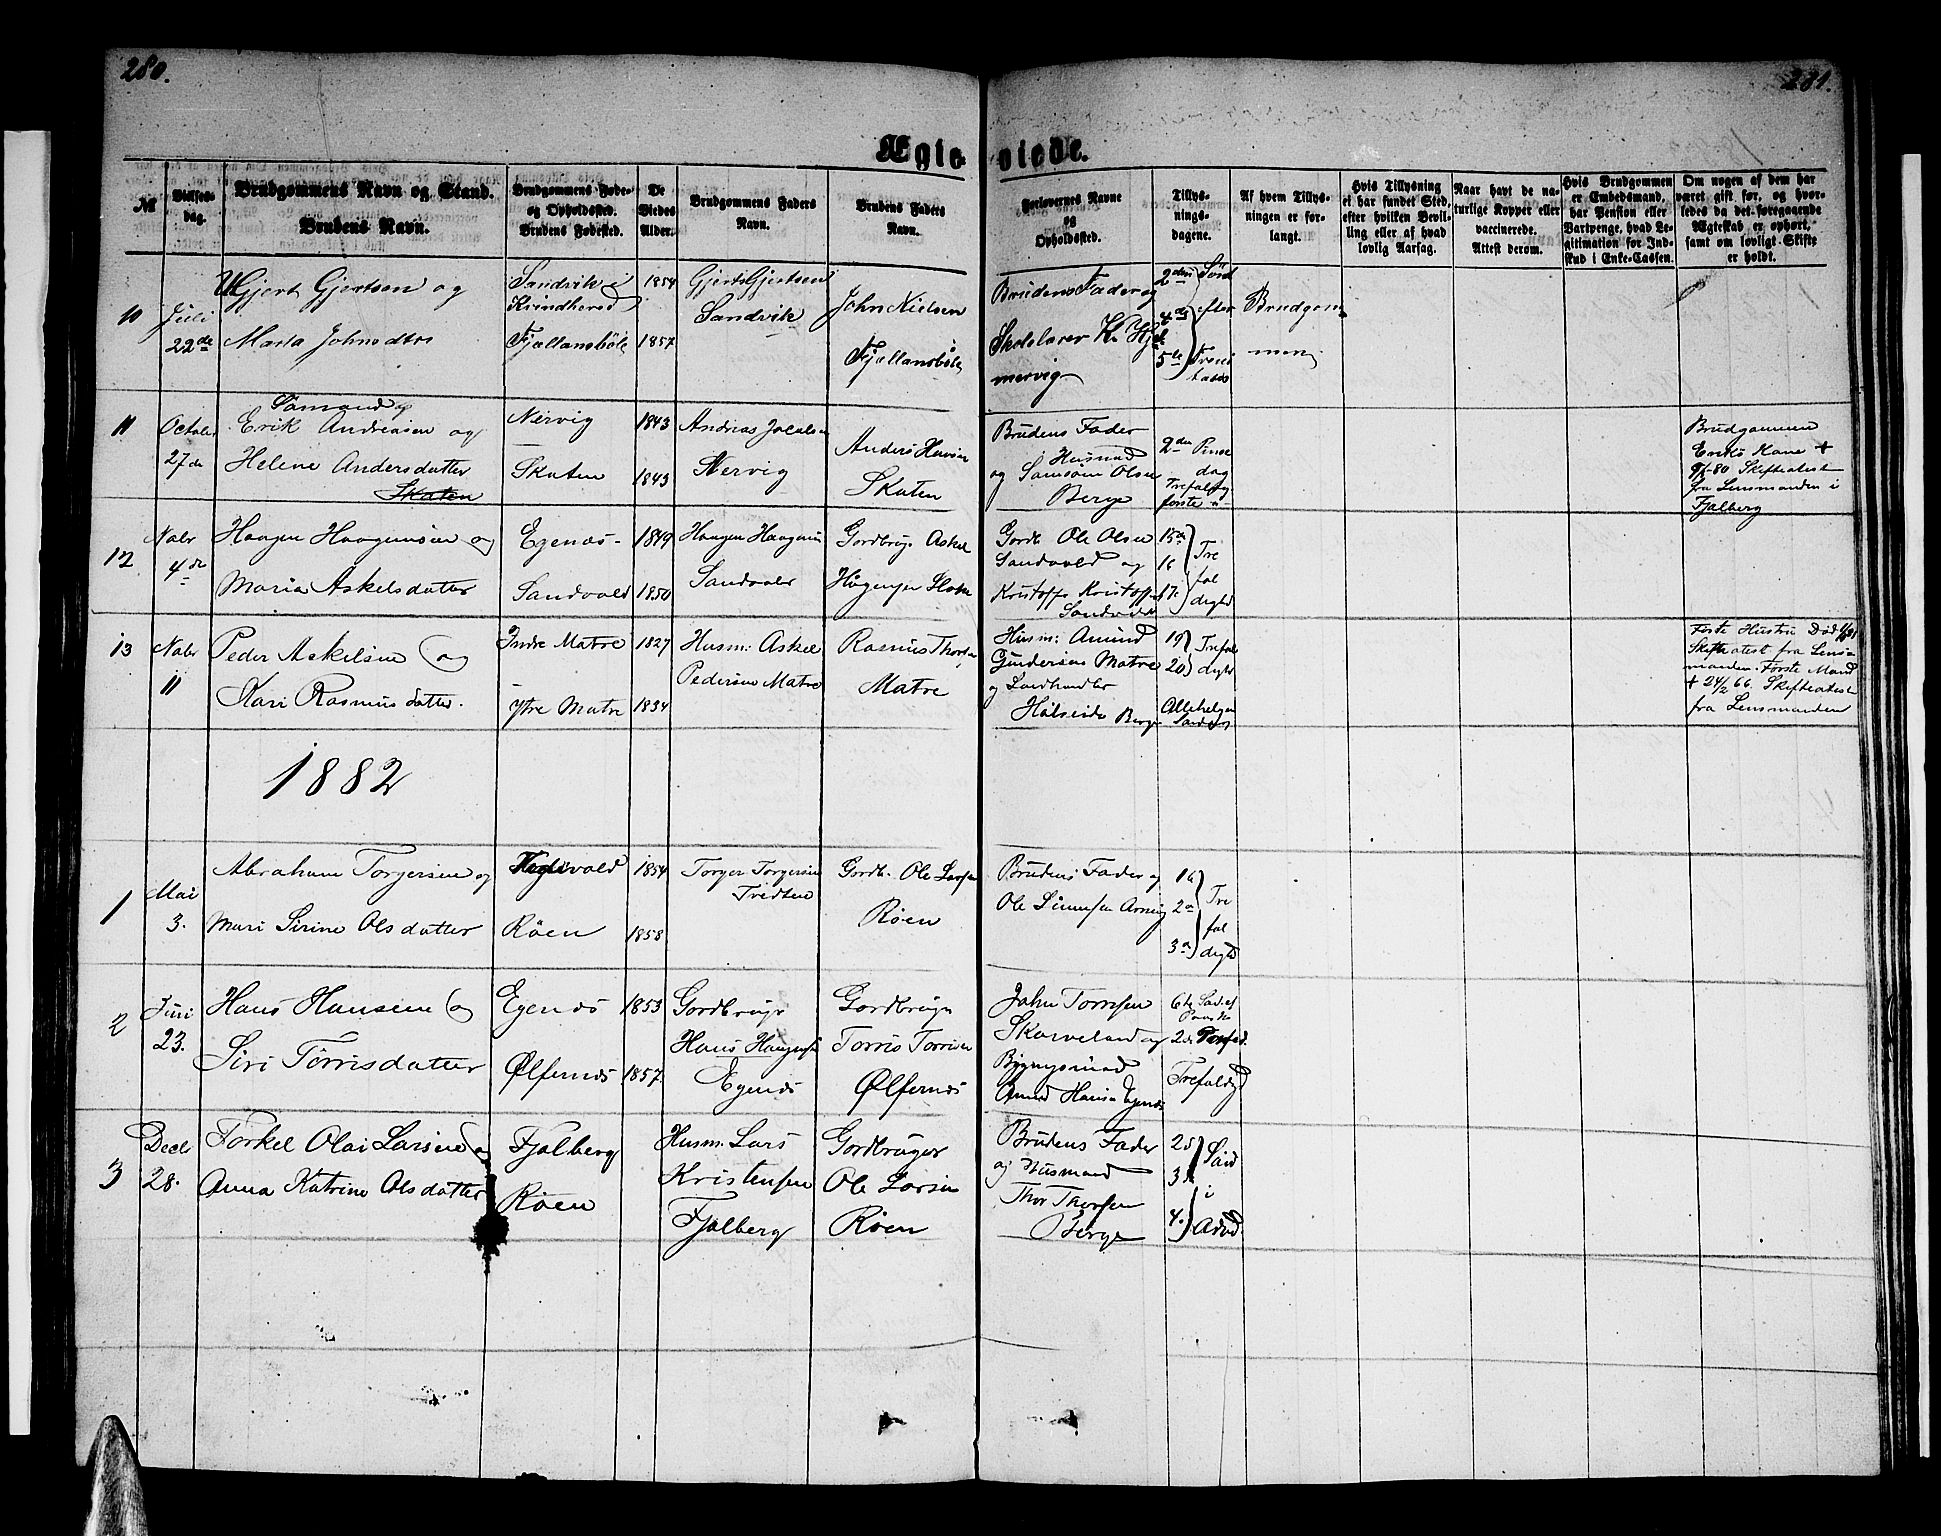 280.
281.
Ægteviede.
No
Vielses-dag.
Brudgommens Navn og Stand.
Brudens Navn.
Brudgommens Føde- og Opholdssted.
Brudens Fødested.
De Viedes Alder.
Brudgommens Faders Navn.
Brudens Faders Navn.
Forlovernes Navne og Opholdssted.
Tillysnings-dagene.
Af hvem Tillysningen er forlangt.
Hvis Tillysning et har fundet Sted, efter hvilken Bevilling eller af hvad lovlig Aarsag.
Naar havt de naturlige Kopper eller vaccinerede. Attest derom.
Hvis Brudgommen er Embedsmand, har Pension eller Vartpenge, hvad Legitimation for Indskud i Enke-Cassen.
Om nogen af dem har været gift før, og hvorledes da det foregaaende Ægteskab er ophørt, samt om lovligt Skifte er holdt.
10
Juli
22de
Gjert Gjertsen og
Marta Johnsdtr
Sandvik i
Kvindherred
Fjællandsbøle
1854
1857
Gjert Gjertsen
Sandvik
John Nielsen
Fjællandsbøle
Brudens Fader og
Skolelærer K.
mervig
2den
4de
5te
Sønd
efter
Brudgom
men
11
Octobr
27de
Sømand
Erik Andreasen og
Helene Andersdatter
Skaten
Nervig
Skaten
1843
1843
Andrias Jacobsen
Nervig
Anders Hansen
Skaten
Brudens Fader
Husmd
og Samson Olsen
Berge
2den Pinse
dag
Trefoldig
første
Brudgommen
Enke Kone +
80 Skifteatest
fra Lensmanden i
Fjelberg
12
Nobr
4de
Haagen Haagensen og
Maria Askelsdatter
Egenæs
Sandvold
1849
1850
Haagen Haagensen
Sandvold
Gordbrug. Askel
Gordb. Ole Olsen
Sandvold og
Kristoffer Kristoffers
15de
16
17.
Tre
fol
dighd
13
Nobr
11
Peder Askelsen og
Kari Rasmusdatter.
Indre Matre
Ytre Matre
1827
1834
Husm: Askel
Pedersen Matre
Rasmus Thors
Matre
Husm: Amund
Gundersen Matre
og Landhandler
Halseide Berge
19
20
Trefol
dighd
Allehelgen
Første Hustru Død
Skifteatest fra Lens-
manden. Første Mand
+ 24/2 66. Skifteatest
fra Lensmanden
1882
1
Mai
3.
Abraham Torgersen og
Mari Sirine Olsdatter
Røen
1854
1858
Torger Torgersen
Tredten
Gordb. Ole Larsen
Røen
Brudens Fader og
Ole Simonsen
1ste
2den
3die
Tre
fol
dighd
2
Juni
23.
Hans Hansen og
Siri Torrisdatter
Egenæs
Ølfernæs
1853
1857
Gordbruger
Hans Haagensen
Egenæs
Gordbruger
Torris Torrisen
Ølfernæs
John Tomsen
Skarveland og
Bygmsmand
6te
2den
Trefoldigd
3
Decbr
28.
Torkel Olai Larsen og
Anna Katrine Olsdatter
Fjelberg
Røen
Husm. Lars
Kristensen
Fjelberg
Gordbruger
Ole Larsen
Røen
Brudens Fader
og Husmand
Thor Thorsen
Berge
2d
3d
4.
Sønd
i
Advd.